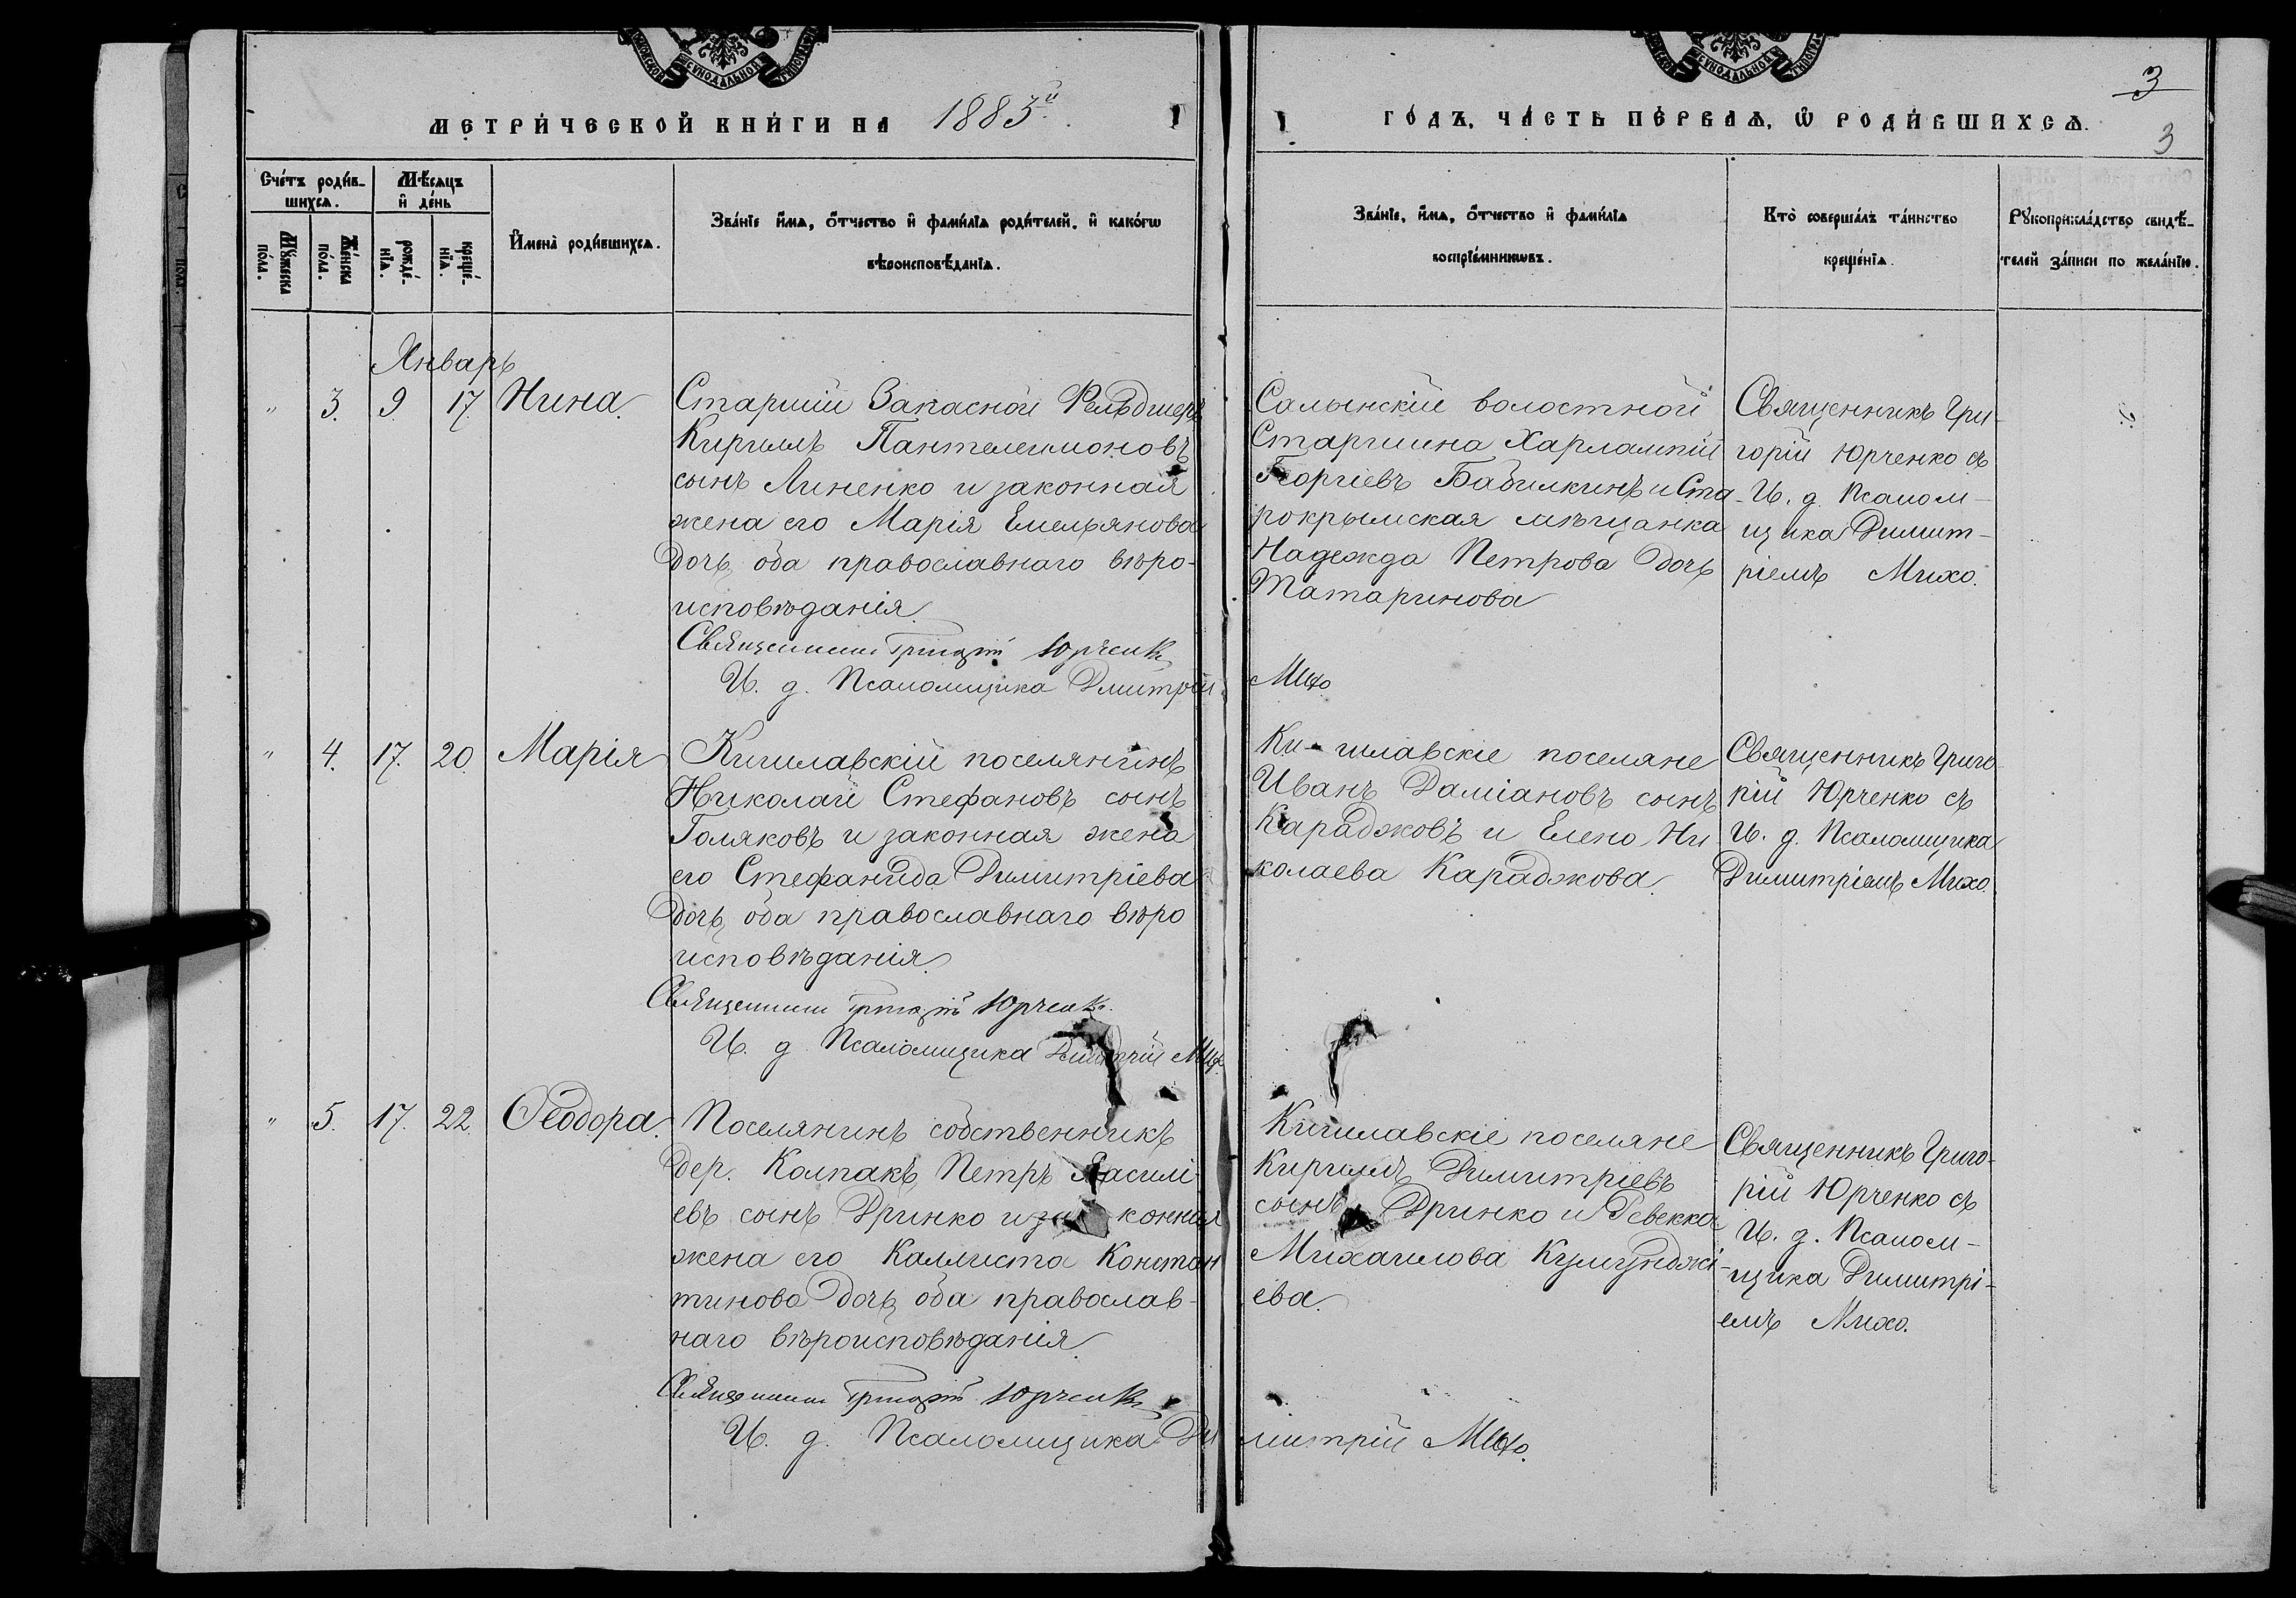 МЕТРИ́ЧЕСКОЙ КНИ́ГИ НА 1883й.
ГО́ДЪ, ЧА́СТЬ ПЕ́РВАѦ, Ѡ РОДИ́ВШИХСѦ.
3
3
Сче́тъ роди́в-
шихсѧ.
Мѣ́сѧцъ
и҆ де́нь
Мꙋ́жеска
по́ла.
Же́нска
по́ла.
рожде́-
нїѧ.
креще́-
нїѧ.
И҆мена̀ роди́вшихсѧ.
Зва́нїе и҆́мѧ, ѻ҆́тчество и҆ фами́лїѧ роди́телей, и҆ како́гѡ
вѣроисповѣ́данїѧ.
Зва́нїе, и҆́мѧ, ѻ҆́тчество и҆ фами́лїѧ
воспрїе́мникѡвъ.
Кто̀ соверша́лъ та́инство
креще́нїѧ.
Рꙋкоприкла́дство свидѣ́-
телей за́писи по жела́нїю.
Январь
" 3. 9 17. Нина.
Старшій Запасной Фельдшеръ
Кириллъ Пантелеимоновъ
сынъ Линенко и законная
жена его Марія Емельянова
дочь, оба православнаго вѣро-
исповѣданія.
Священникъ Григорій Юрченко
И. д. Псаломщика Дмитрій Михо
Салынскій волостной
Старшина Харлампій
Георгіевъ Бабилкинъ и Ста-
рокрымская мѣщанка
Надежда Петрова дочь
Татаринова
Священникъ Гри-
горій Юрченко съ
И. д. Псалом-
щика Димит-
ріемъ Михо.
" 4. 17. 20. Марія
Кишлавскій поселянинъ
Николай Стефановъ сынъ
Голяковъ и законная жена
его Стефанида Димитріева
дочь, оба православнаго вѣро
исповѣданія.
Священникъ Григорій Юрченко.
И. д. Псаломщика Дмитрій Михо
Ки-шлавскіе поселяне
Иванъ Даміановъ сынъ
Караджовъ и Елена Ни
колаева Караджова.
Священникъ Григо-
рій Юрченко съ
И. д. Псаломщика
Димитріемъ Михо.
" 5. 17. 22. Ѳеодора.
Поселянинъ собственникъ
дер. Колпакъ, Петръ Василі
евъ сынъ Дринко и законная
жена его Каллиста Констан
тинова дочь, оба православ-
наго вѣроисповѣданія.
Священникъ Григорій Юрченко
И. д. Псаломщика Димитрій Михо.
Кишлавскіе поселяне
Кириллъ Димитріевъ
сынъ Дринко и Ревекка
Михаилова Куюунджі-
ева.
Священникъ Григо-
рій Юрченко съ
И. д. Псалом-
щика Димитрі-
емъ Михо.